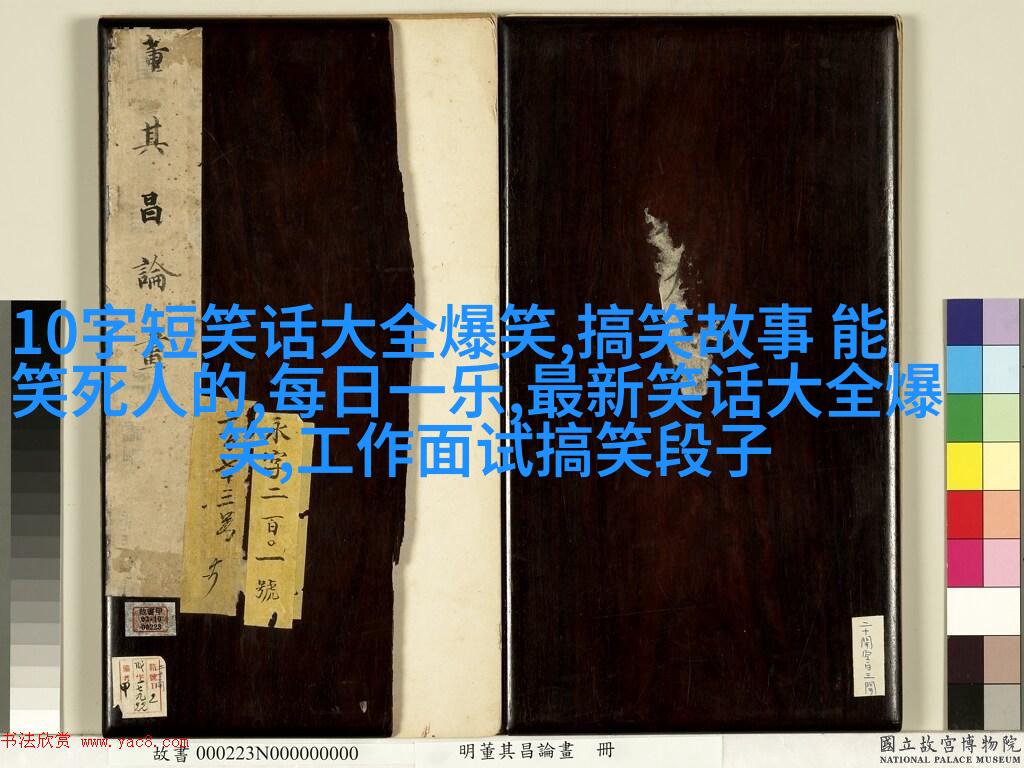 董其昌論畫
10字短笑话大全爆笑,搞笑故事 能
笑死人的,每日一乐,最新笑话大全爆
笑,工作面试搞笑段子
永字二百〇一號
故書 000223N000000000
明董其昌論畫 冊
國立故宮博物院
NATIONAL PALACE MUSEUM
书法欣赏 www.yac8.com